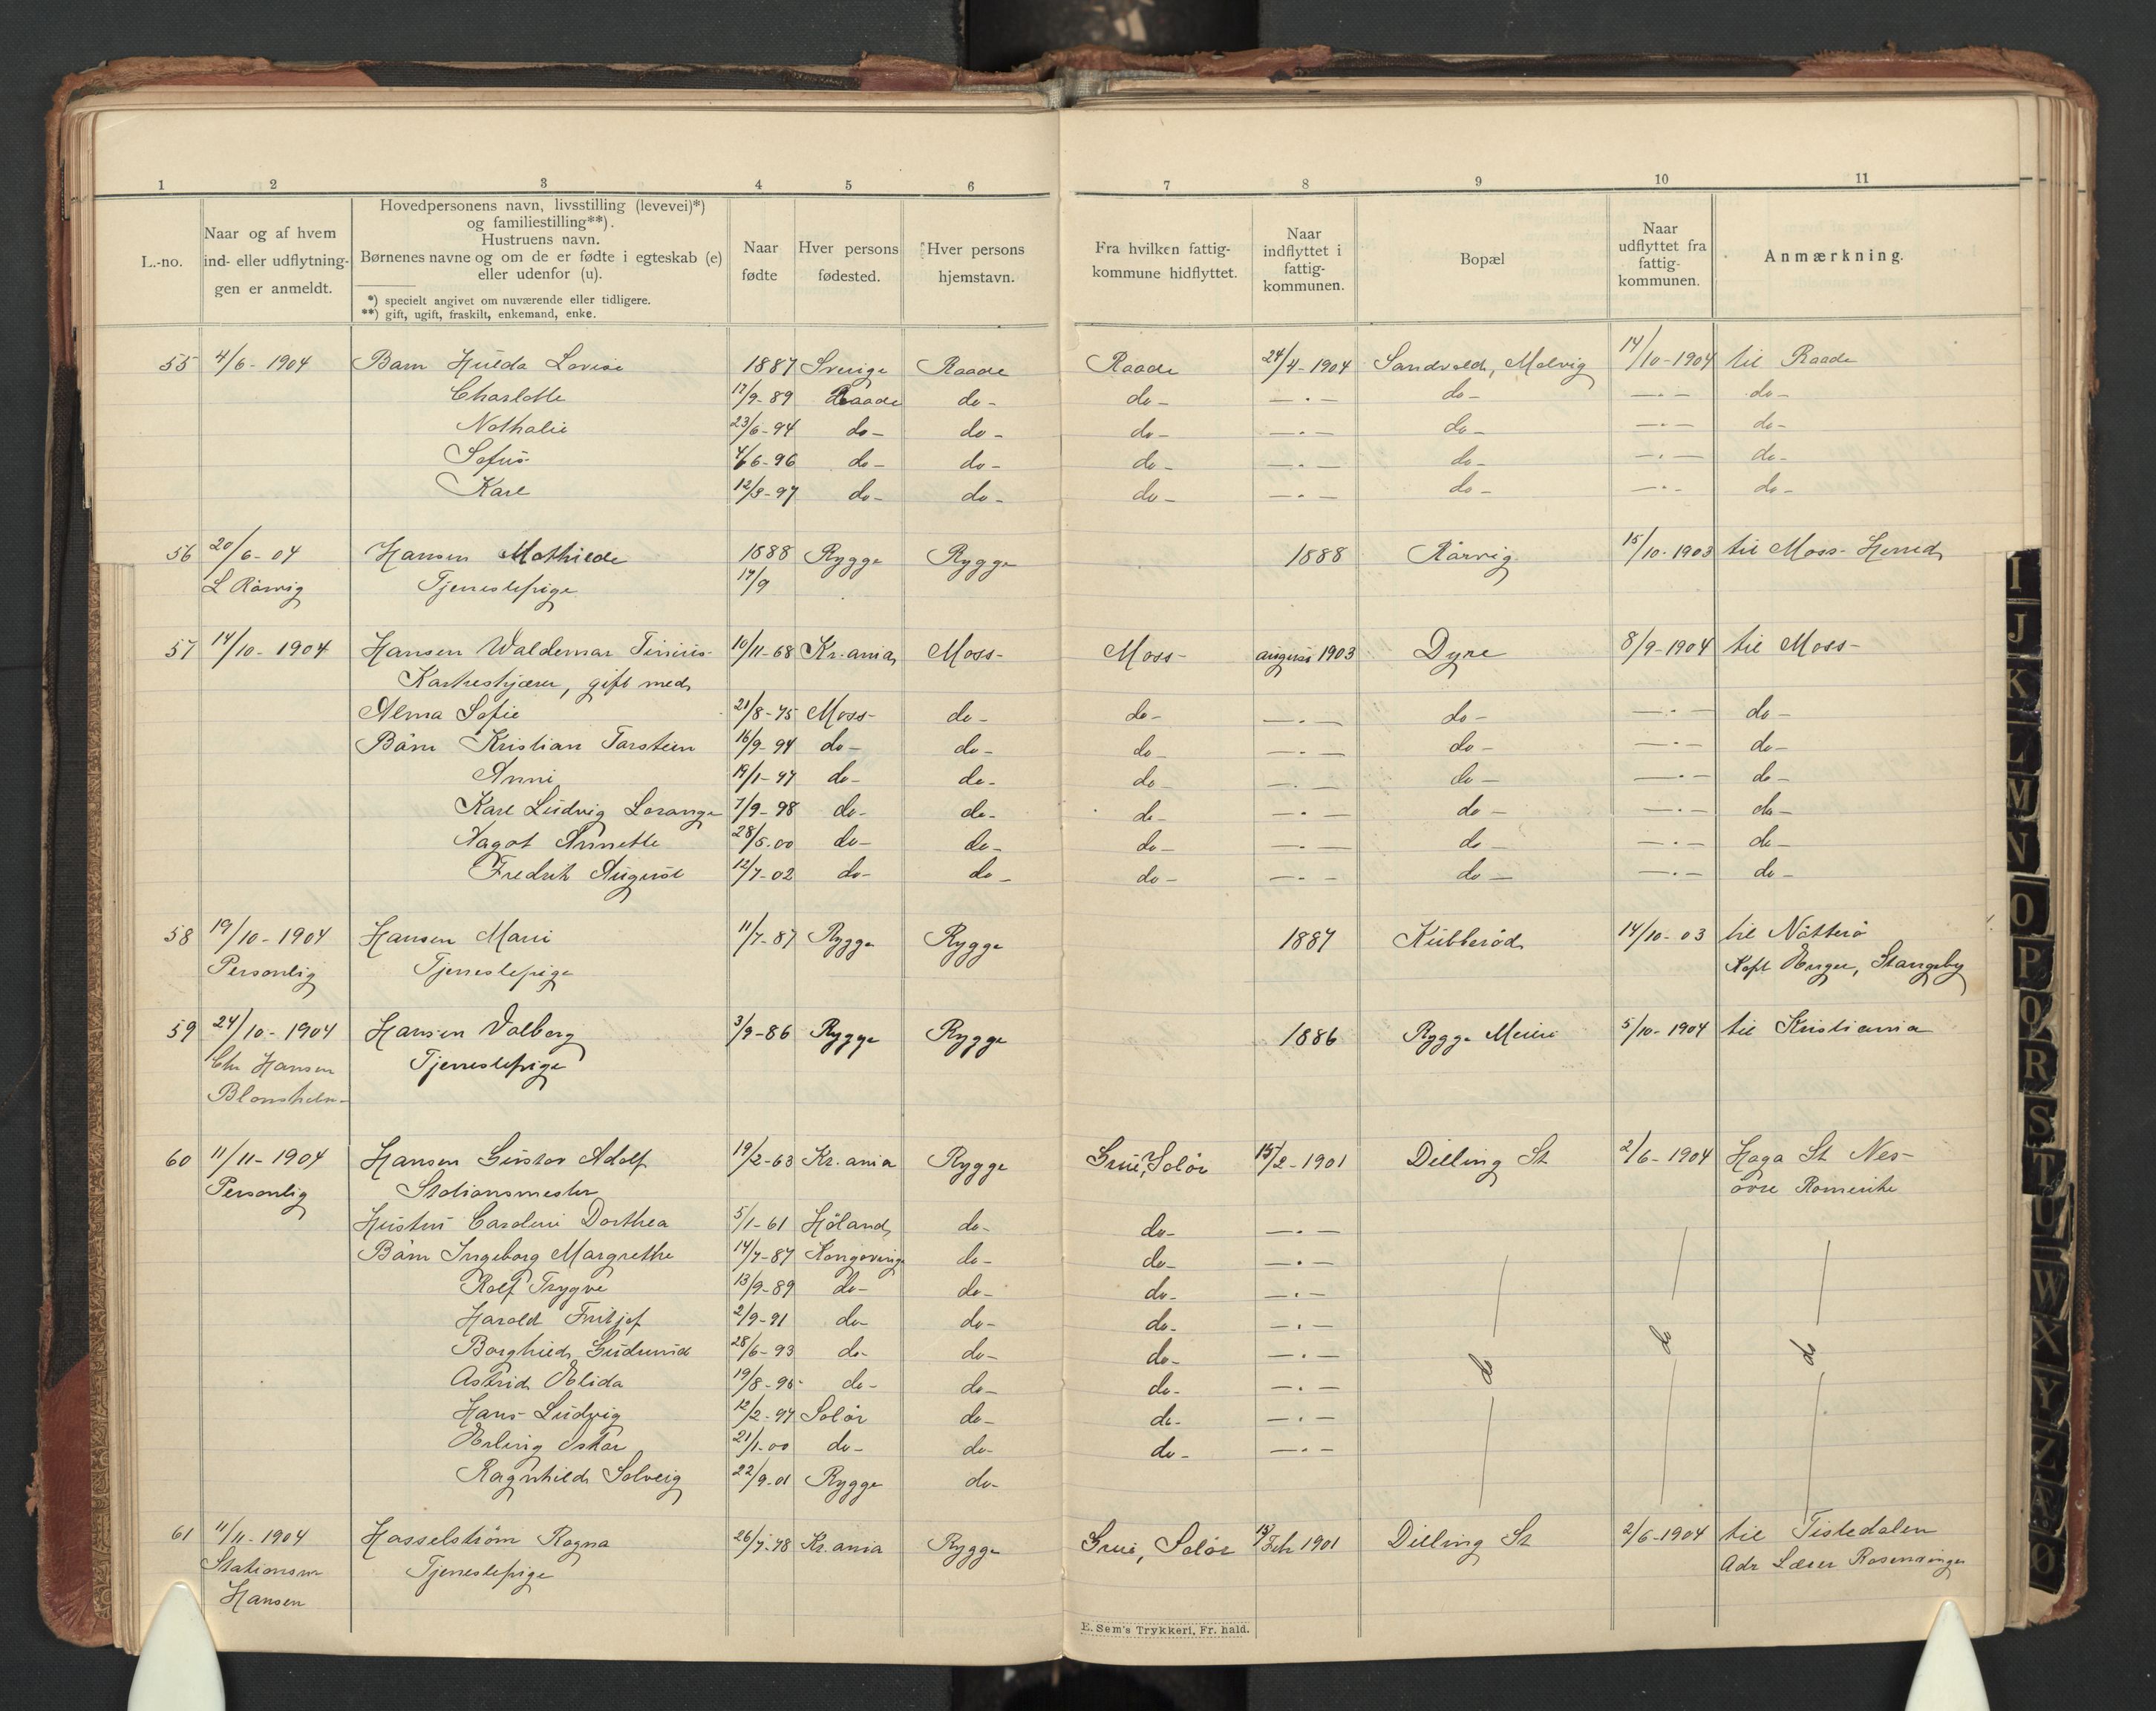 1 2 3 4 5 6 7 8 9 10 11
L.-no.
Naar og af hvem
ind- eller udflytnin-
gen er anmeldt.
Hovedpersonens navn, livsstilling (levevei)*)
og familiestilling**).
Hustruens navn.
Børnenes navne og om de er fødte i egteskab (e)
eller udenfor (u).
*) specielt angivet om nuværende eller tidligere.
**) gift, ugift, fraskilt, enkemand, enke.
Naar
fødte
Hver persons
fødested.
Hver persons
hjemstavn.
Fra hvilken fattig-
kommune hidflyttet.
Naar
indflyttet i
fattig-
kommunen.
Bopæl
Naar
udflyttet fra
fattig-
kommunen.
Anmærkning.
55 4/6- 1904 Barn Hulda Lovise 1887 Sverige Raade Raade 24/4-1904 Sandvold, Melvig 14/10-1904 til Raade
Charlotte 17/9-89 Raade do- do- —.— do- —.— do-
Nathalie 23/6-94 do- do- do- —.— do- —.— do-
Sofus 4/6-96 do- do- do- —.— do- —.— do-
Karl 12/3-97 do- do- do- —.— do- —.— do-
56 20/6-04 Hansen Mathilde 1888 Rygge Rygge 1888 Rørvig 15/10-1903 til Moss Herred
L Rørvig Tjenestepige 17/9
57 14/10-1904 Hansen Waldemar Tinius 10/11-68 Kr.ania Moss- Moss- august 1903 Dyre 8/9-1904 til Moss-
gift med
Alma Sofie 21/8-75 Moss- do- do- —.— do- —.— do-
Børn Kristian Torstein 16/9-94 do- do- do- —.— do- —.— do-
Anni 19/1-97 do- do- do- —.— do- —.— do-
Karl Ludvig Lorange 7/9-98 do- do- do- —.— do- —.— do-
Aagot Annette 28/5.00 do- do- do- —.— do- —.— do-
Fredrik August 12/7-02 do- do- do- —.— do- —.— do-
58 19/10-1904 Hansen Marie 11/7-87 Rygge Rygge 1887 Kubberød 14/10-03 til Nøtterø
Personlig Tjenestepige Kapt Enger, Stangeby
59 24/10-1904 Hansen Valborg 3/9-86 Rygge Rygge 1886 Rygge Meieri 5/10-1904 til Kristiania
Chr Hansen Tjenestepige
60 11/11-1904 Hansen Gustav Adolf 19/2-63 Kr.ania Rygge Grue, Solør 15/2-1901 Dilling St 2/6-1904 Haga St Nes-
Personlig Stationsmester øvre Romerike
Hustru Caroline Dorthea 5/1-61 Høland do- do- —.—
Børn Ingeborg Margrethe 14/7-87 Kongsvinge do- do- —.—
Rolf Trygve 13/9-89 do- do- do- —.—
Harald Fritjof 2/9-91 do- do- do- —.—
Borghild Gudrund 28/6-93 do- do- do- —.— do do do
Astrid Elida 19/8-95 do- do- do- —.—
Hans Ludvig 12/2-97 Solør do- do- —.—
Erling Oskar 21/1-00 do- do- do- —.—
Ragnhild Solveig 22/9.01 Rygge do-
61 11/11-1904 Hasselstrøm Ragna 26/7-78 Kr.ania Rygge Grue, Solør 15/Feb 1901 Dilling St 2/6-1904 til Tistedalen
Stationsm Tjenestepige Adr Lærer
Hansen
E. Sem's Trykkeri, Fr. hald.
I
J
K
L
M
N
O
P
Q
R
S
T
U
W
X
Y
Z
Æ
Ø